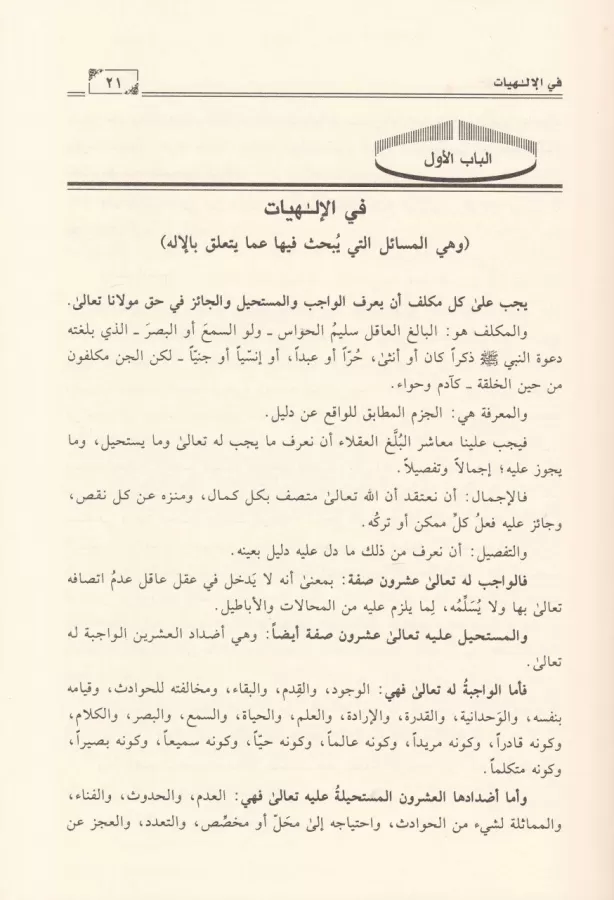 في الإلـٰهيات
٢١
الباب الأول
في الإلـٰهيات
(وهي المسائل التي يُبحث فيها عما يتعلق بالإلاه)
يجب علىٰ كل مكلف أن يعرف الواجب والمستحيل والجائز في حق مولانا تعالىٰ.
والمكلف هو: البالغ العاقل سليمُ الحواس ـ ولو السمعَ أو البصرَ ـ الذي بلغته
دعوة النبي ﷺ ذكراً كان أو أنثىٰ، حُرّاً أو عبداً، أو إنسّياً أو جنيّاً ـ لكن الجن مكلفون
من حين الخلقة ـ كآدم وحواء.
والمعرفة هي: الجزم المطابق للواقع عن دليل.
فيجب علينا معاشر البُلَّغ العقلاء أن نعرف ما يجب له تعالىٰ وما يستحيل، وما
يجوز عليه؛ إجمالاً وتفصيلاً.
فـالإجمال: أن نعتقد أن الله تعالىٰ متصف بكـل كمال، ومنزه عن كل نقص،
وجائز عليه فعلُ كلِّ ممكن أو تركُه.
والتفصيل: أن نعرف من ذلك ما دل عليه دليل بعينه.
فالواجب له تعالىٰ عشرون صفة: بمعنىٰ أنه لا يَدخل في عقل عاقل عدمُ اتصافه
تعالىٰ بها ولا يُسَلِّمُه، لِما يلزم عليه من المحالات والأباطيل.
والمستحيل عليه تعالىٰ عشرون صفة أيضاً: وهي أضداد العشرين الواجبة له
تعالىٰ.
فأما الواجبةُ له تعالىٰ فهي: الوجود، والقِدم، والبقاء، ومخالفته للحوادث، وقيامه
بنفسه، والوَحدانية، والقدرة، والإرادة، والعلم، والحياة، والسمع، والبصر، والكلام،
وكونه قادراً، وكونه مريداً، وكونه عالماً، وكونه حيّاً، وكونه سميعاً، وكونه بصيراً،
وكونه متكلماً.
وأما أضدادها العشرون المستحيلةُ عليه تعالىٰ فهي: العدم، والحدوث، والفناء،
والمماثلة لشيء من الحوادث، واحتياجه إلىٰ محَلّ أو مخصِّص، والتعدد، والعجز عن